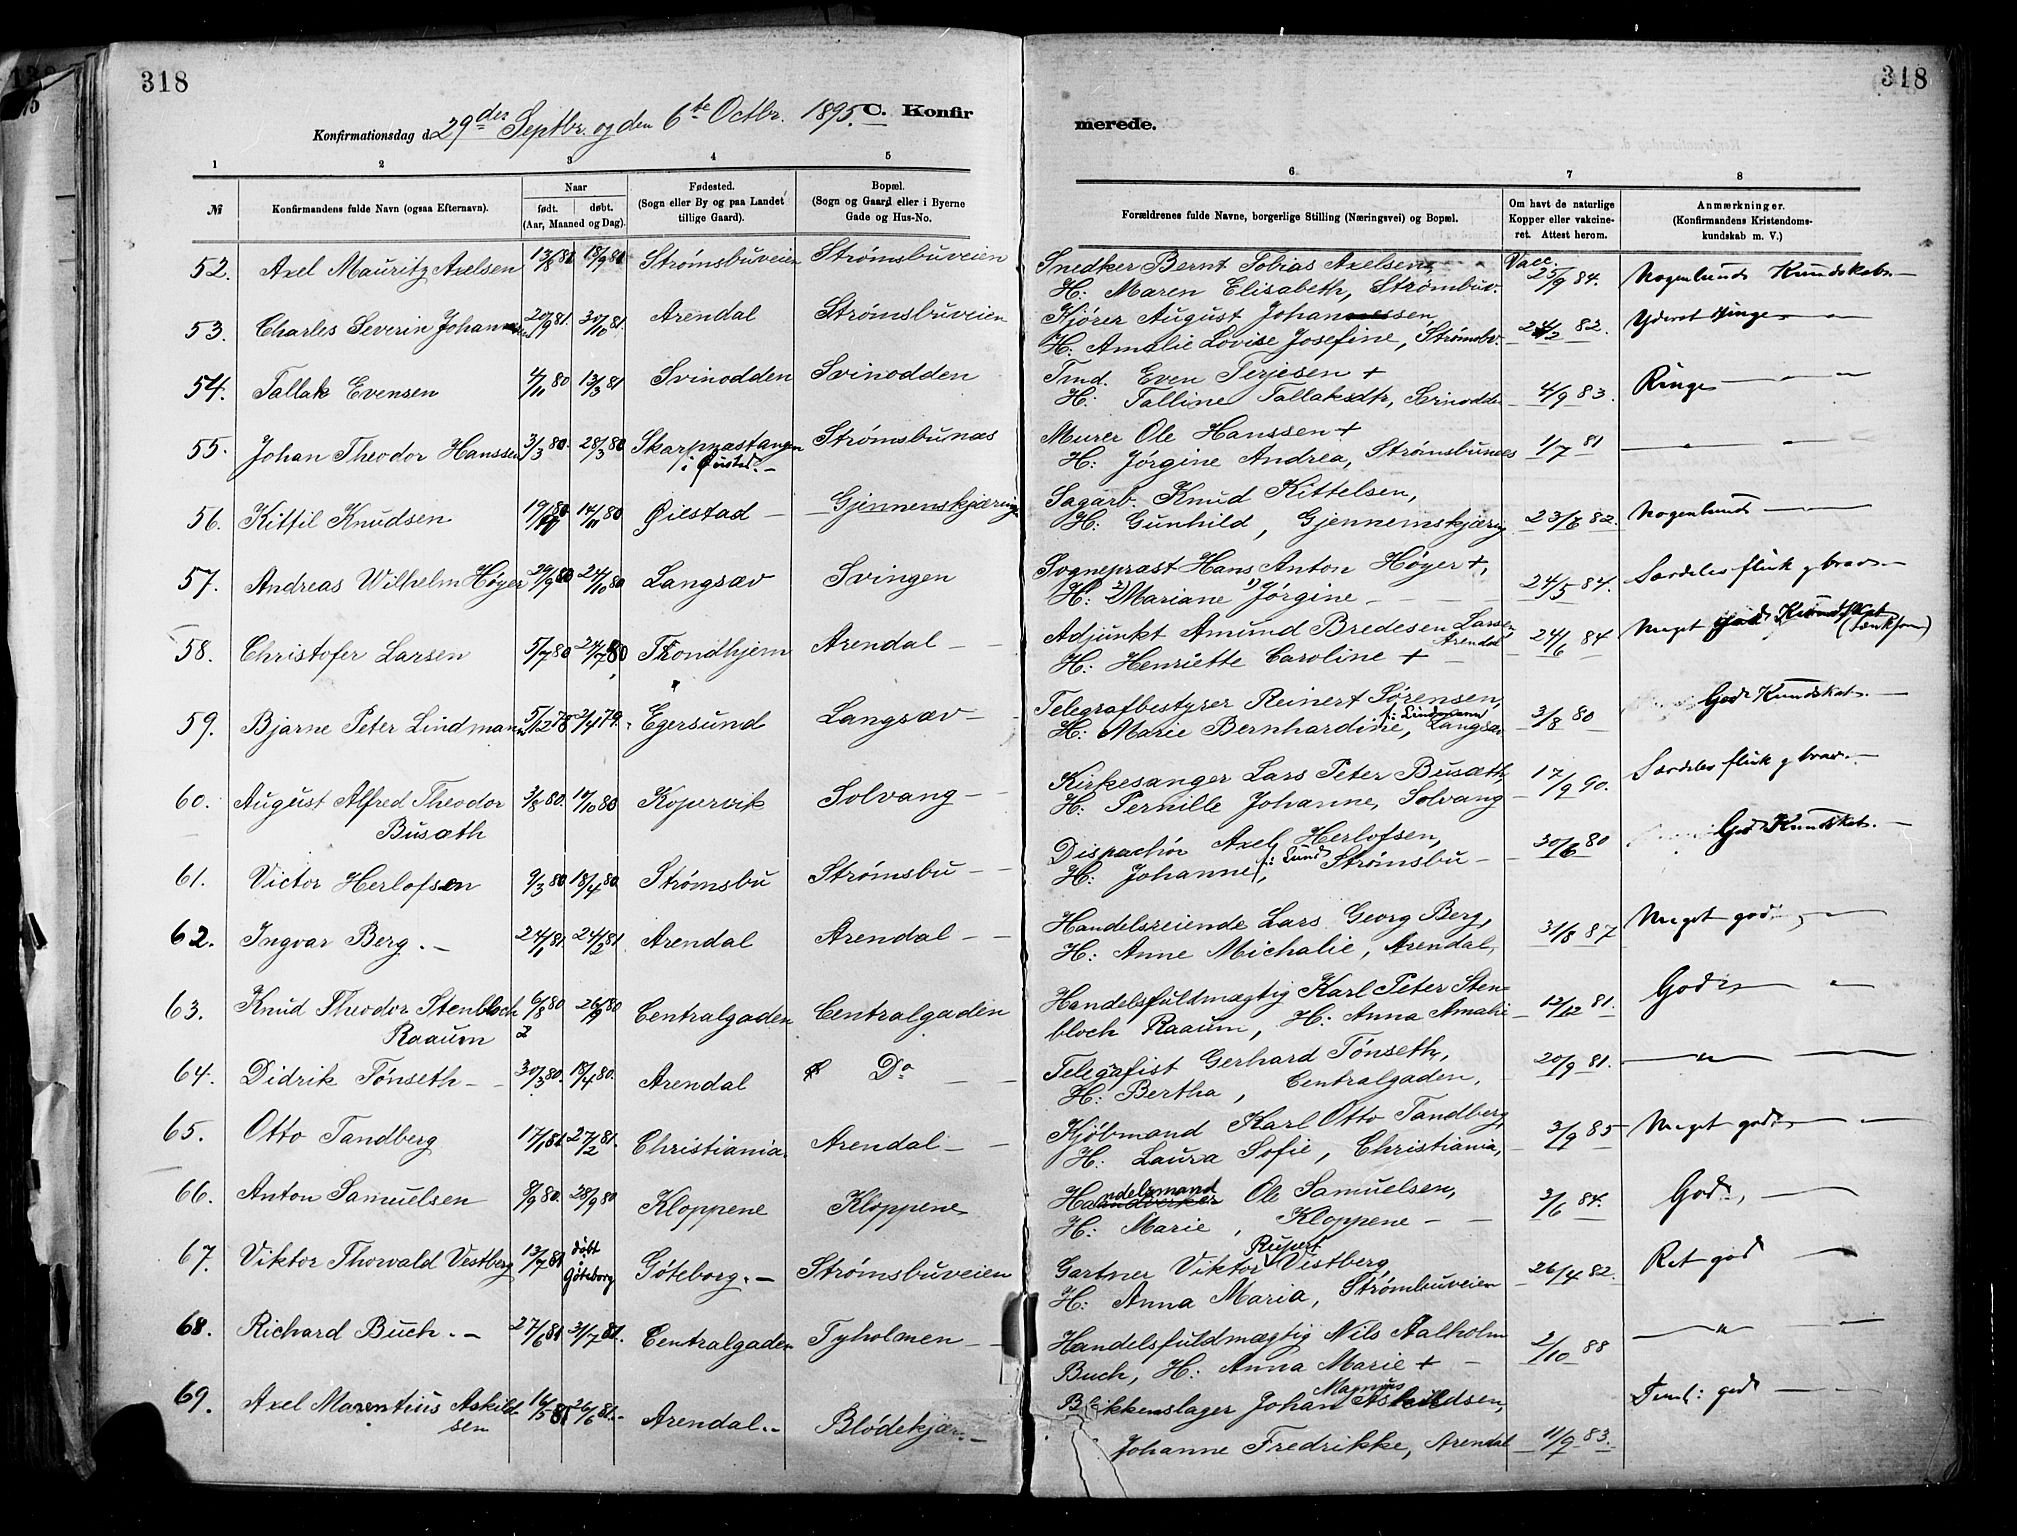 318
318
Konfirmationsdag d. 29de Septbr. og den 6te Octbr. 1895. C. Konfir
merede.
1 2 3 4 5 6 7 8
№ Konfirmandens fulde Navn (ogsaa Efternavn). Naar født. døbt. (Aar, Maaned og Dag). Fødested. (Sogn eller By og paa Landet tillige Gaard). Bopæl. (Sogn og Gaard eller i Byerne Gade og Hus-No. Forældrenes fulde Navne, borgerlige Stilling (Næringsvei) og Bopæl. Om havt de naturlige Kopper eller vakcineret. Attest herom. Anmærkninger. (Konfirmandens Kristendomskundskab m. V.)
52. Axel Mauritz Axelsen 13/8 81 18/9 81 Strømsbuveien Strømsbuveien Snedker Bernt Tobias Axelsen, Vacc.
H: Maren Elisabeth, Strømbuv. 25/9 84. Nogenlunde Kundskab
53. Charles Severin Johannesen 20/9 81. 30/10 81. Arendal Strømsbuveien Kjører August Johannessen,
H: Amalie Lovise Josefine, Strømsbv. 24/2 82. Yderst ringe
54. Tallak Evensen 4/11 80 13/3 81 Svinodden Svinodden Tmd. Even Terjesen +
H: Talline Tallaksdtr, Svinodden 4/9 83. Ringe
55. Johan Theodor Hanssen 3/3 80. 28/3 80 Skarpnæstangen Strømsbunæs Murer Ole Hanssen +
i Øiestad H: Jørgine Andrea, Strømsbunæs 1/7 81 "
56. Kittil Knudsen 19/ 80 14/11 80 Øiestad Gjennemskjæring Sagarb. Knud Kittelsen,
H: Gunhild, Gjennemskjæring 23/6 82. Nogenlunde
57. Andreas Wilhelm Høyer 29/9 80 24/10 80 Langsæv Svingen Sogneprast Hans Anton Høyer +,
H: 2) Mariane 1) Jørgine 24/5 84. Særdeles flink og brav
58. Christofer Larsen 5/7 80 24/7 80 Trondhjem Arendal Adjunkt Amund Bredesen Larsen Arendal
H: Henriette Caroline + 24/6 84 Meget god Kundskab
59. Bjarne Peter Lindmann 5/12 78 2/4 79. Egersund Langsæv Telegrafbestyrer Reinert Sørensen,
H: Marie Bernhardine, f: Lindmann Langsæv 3/8 80 God Kundskab.
60. August Alfred Theodor 3/8 80. 17/10 80 Kopervik Solvang Kirkesanger Lars Peter Busæth,
Busæth H: Pernille Johanne, Solvang 17/9 90. Særdeles flink og brav
61. Victor Herlofsen 9/3 80 18/4 80. Strømsbu Strømsbu Dispachør Axel Herlofsen,
H: Johanne, f: Lund Strømsbu 30/6 80 God Kundskab.
62. Ingvar Berg. 24/1 81. 24/2 81 Arendal Arendal Handelsreiende Lars Georg Berg,
H: Anne Michalie, Arendal, 31/8 87 Meget god
63. Knud Theodor Stenbloch 6/8 80 26/9 80 Centralgaden Centralgaden Handelsfuldmægtig Karl Peter Sten-
Raaum bloch Raaum, H: Anna Amalie 12/12 81. God
64. Didrik Tønseth 30/3 80. 18/4 80. Arendal Do Telegrafist Gerhard Tønseth,
H: Bertha, Centralgaden, 20/9 81. "
65. Otto Tandberg 17/1 81. 27/2 81. Christiania. Arendal Kjøbmand Karl Otto Tandberg,
H: Laura Sofie, Christiania, 3/9 85 Meget god
66. Anton Samuelsen 8/9 80. 28/9 80 Kloppene Kloppene Handelsmand Ole Samuelsen,
H: Marie, Kloppene 3/6 84. God,
67. Viktor Thorvald Vestberg 13/7 81 døbt Göteborg Göteborg. Strømsbuveien Gartner Viktor Rupert Vestberg,
H: Anna Maria, Strømbuveien 26/4 82. Ret god
68. Richard Buch. 27/6 81 31/7 81. Centralgaden Tyholmen Handelsfuldmægtig Nils Aalholm
Buch, H: Anna Marie + 2/10 88 "
69. Axel Marentius Askild- 16/5 81 26/6 81. Arendal. Blødekjær. Blikkenslager Johan Magnus Askildsen,
sen Johanne Fredrikke, Arendal 11/9 83. Teml: god